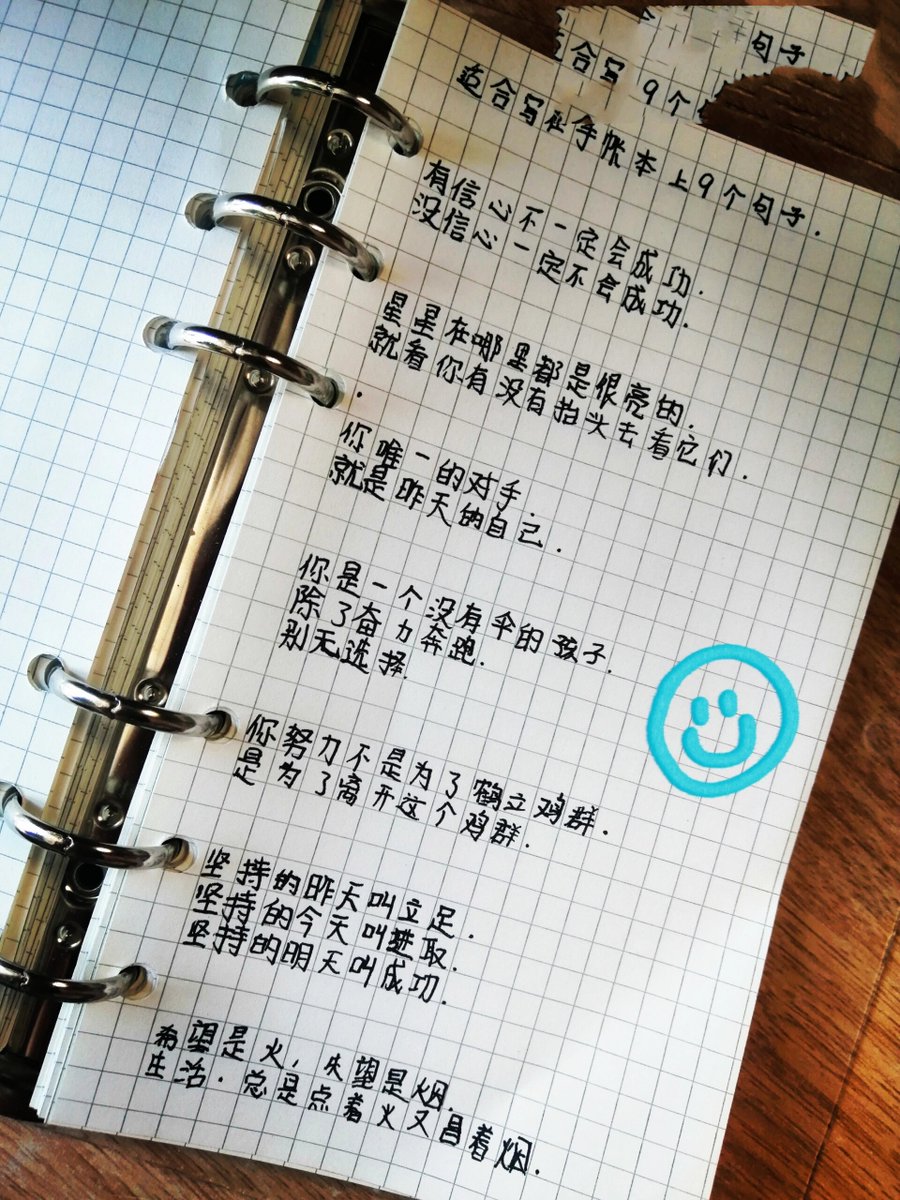 句子.
合写 9个
适合写在手帐本上9个句子.
有信心不一定会成功.
没信心一定不会成功.
星星在哪里都是很亮的.
就看你有没有抬头去看它们.
你唯一的对手.
就是昨天的自己.
你是一个没有伞的孩子.
除了奋力奔跑.
别无选择.
你努力不是为了鹤立鸡群.
是为了离开这个鸡群.
坚持的昨天叫立足.
坚持的今天叫进取.
坚持的明天叫成功.
希望是火,失望是烟.
生活.总是点着火又冒着烟.